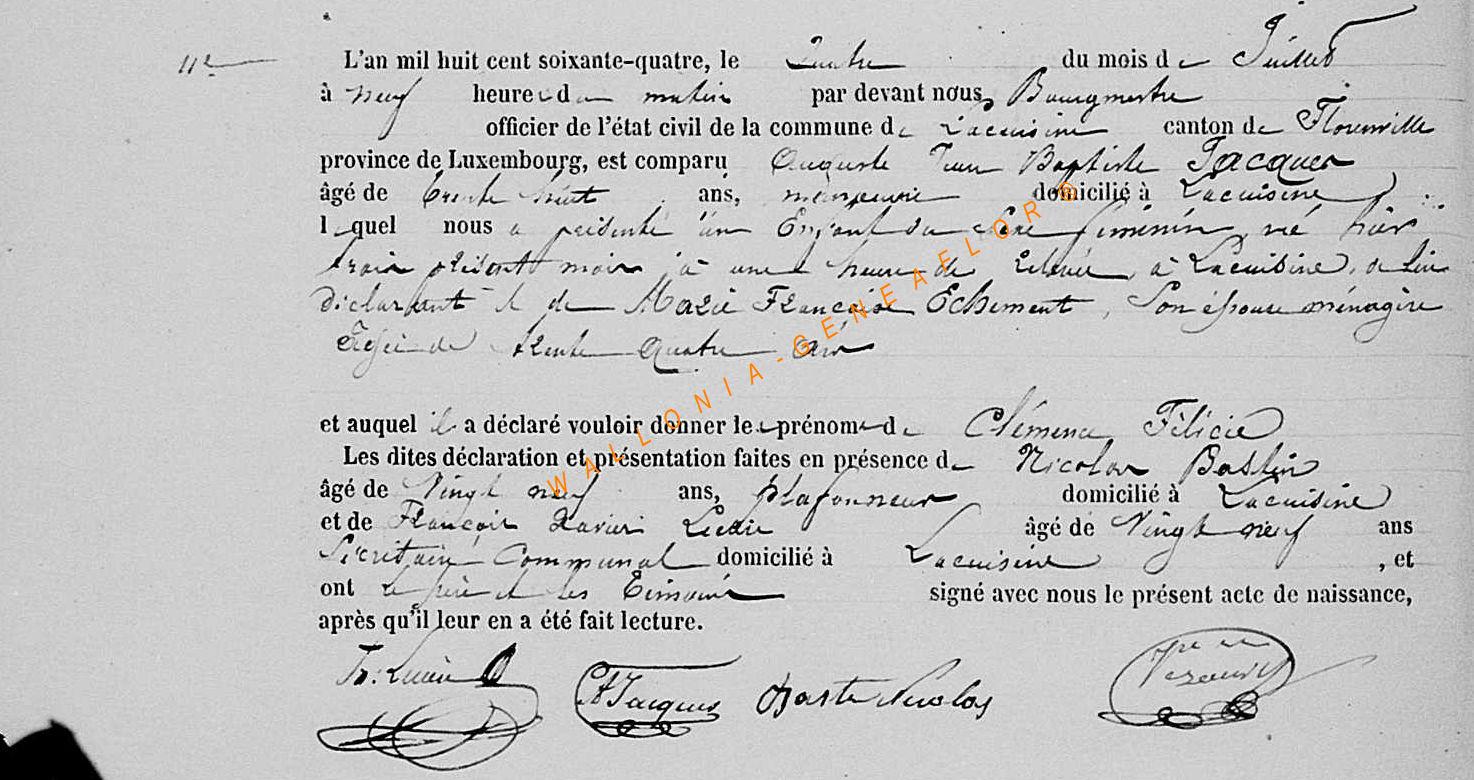 11e
L'an mil huit cent soixante-quatre, le quatre du mois de Juillet
à neuf heures du matin par devant nous, Bourgmestre
officier de l'état civil de la commune de Lacuisine canton de Florenville
province de Luxembourg, est comparu Auguste Jean Baptiste Jacques
âgé de trente huit ans, menuisier domicilié à Lacuisine,
lequel nous a présenté un Enfant du sexe féminin, né hier
trois présent mois, à une heure de relevée, à Lacuisine, de lui
déclarant et de Marie Françoise Echement, Son épouse ménagère
Agée de trente quatre ans
et auquel il a déclaré vouloir donner les prénoms de Clémence Félicie
Les dites déclaration et présentation faites en présence de Nicolas Bastin
âgé de Vingt neuf ans, plafonneur domicilié à Lacuisine
et de François Xavier âgé de Vingt neuf ans
Sécrétaire Communal domicilié à Lacuisine, et
ont le père et les témoins signé avec nous le présent acte de naissance,
après qu'il leur en a été fait lecture.
A Jacques Bastin Nicolas
WALLONIA-GENEAELOR®